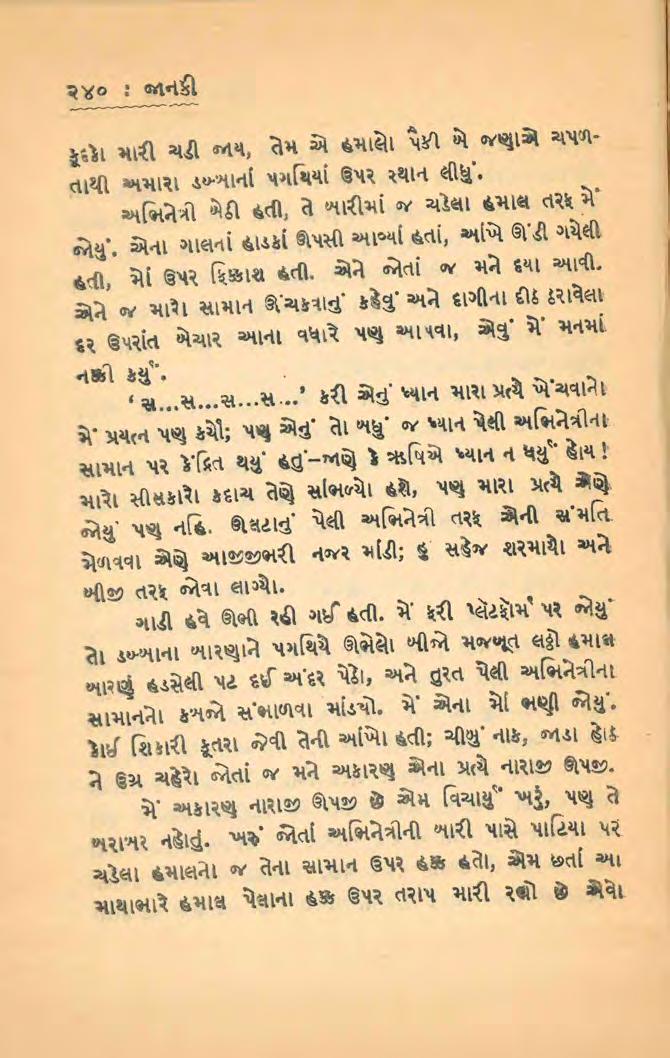 ૨૪૦ : જાનકી
કૂદકો મારી ચડી જાય, તેમ એ હમાલો પૈકી બે જણાએ ચપળ-
તાથી અમારા ડબ્બાનાં પગથિયાં ઉપર સ્થાન લીધું.
અભિનેત્રી બેઠી હતી, તે બારીમાં જ ચડેલા હમાલ તરફ મેં
જોયું. એના ગાલનાં હાડકાં ઊપસી આવ્યાં હતાં, આંખે ઊંડી ગયેલી
હતી, મોં ઉપર ફિક્કાશ હતી. એને જોતાં જ મને દયા આવી.
એને જ મારો સામાન ઊંચકવાનું કહેવું અને દાગીના દીઠ ઠરાવેલા
દર ઉપરાંત બેચાર આના વધારે પણ આપવા, એવું મેં મનમાં
નક્કી કર્યું.
‘સ...સ...સ...સ...’ કરી એનું ધ્યાન મારા પ્રત્યે ખેંચવાનો
મેં પ્રયત્ન પણ કર્યો; પણ એનું તો બધું જ ધ્યાન પેલી અભિનેત્રીના
સામાન પર કેંદ્રિત થયું હતું–જાણે કે ઋષિએ ધ્યાન ન ધર્યું હોય !
મારો સીસકારો કદાચ તેણે સાંભળ્યો હશે, પણ મારા પ્રત્યે એણે
જોયું પણ નહિ. ઊલટાનું પેલી અભિનેત્રી તરફ એની સંમતિ
મેળવવા એણે આજીજીભરી નજર માંડી; હું સહેજ શરમાયો અને
બીજી તરફ જોવા લાગ્યો.
ગાડી હવે ઊભી રહી ગઈ હતી. મેં ફરી પ્લૅટફૉર્મ પર જોયું
તો ડબ્બાના બારણાને પગથિયે ઊભેલો બીજો મજબૂત લઠ્ઠો હમાલ
બારણું હડસેલી પટ દઈ અંદર પેઠો, અને તુરત પેલી અભિનેત્રીના
સામાનનો કબજો સંભાળવા માંડ્યો. મેં એના મોં ભણી જોયું.
કોઈ શિકારી કૂતરા જેવી તેની આંખો હતી; ચીબું નાક, જાડા હોઠ
ને ઉગ્ર ચહેરો જોતાં જ મને અકારણ એના પ્રત્યે નારાજી ઊપજી.
મેં અકારણ નારાજી ઊપજી છે એમ વિચાર્યું ખરું, પણ તે
બરાબર નહોતું. ખરું જોતાં અભિનેત્રીની બારી પાસે પાટિયા પર
ચડેલા હમાલનો જ તેના સામાન ઉપર હક્ક હતો, એમ છતાં આ
માથાભારે હમાલ પેલાના હક્ક ઉપર તરાપ મારી રહ્યો છે એવો